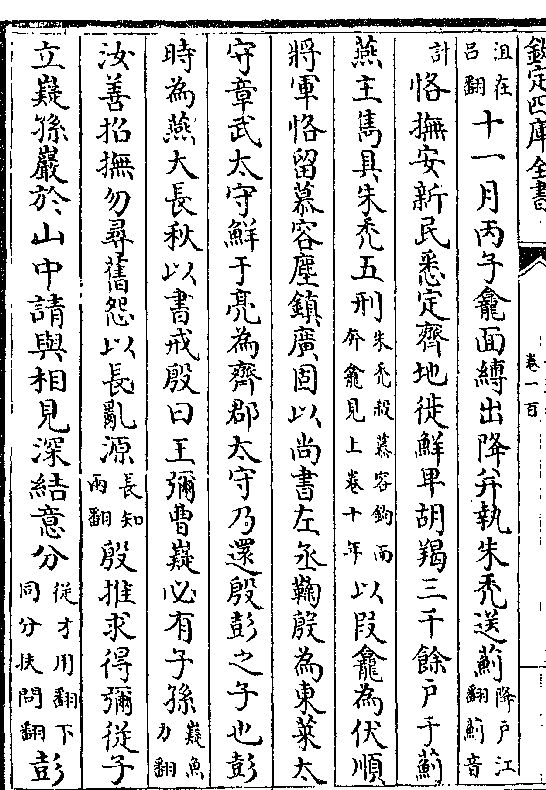 欽定四庫全書
卷一百
沮在呂翻十一月丙子龕面縛出降并執朱禿送薊降戶江翻薊音
計恪撫安新民悉定齊地徙鮮卑胡羯三千餘戶于薊
燕主雋具朱禿五刑朱禿殺慕容鉤而奔龕見上卷十年以段龕為伏順
將軍恪留慕容塵鎮廣固以尚書左丞鞠殷為東萊太
守章武太守鮮于亮為齊郡太守乃還殷彭之子也彭
時為燕大長秋以書戒殷曰王彌曹嶷必有子孫嶷魚力翻
汝善招撫勿尋舊怨以長亂源長知兩翻殷推求得彌從子
立嶷孫巖於山中請與相見深結意分從才用翻下同分扶問翻彭